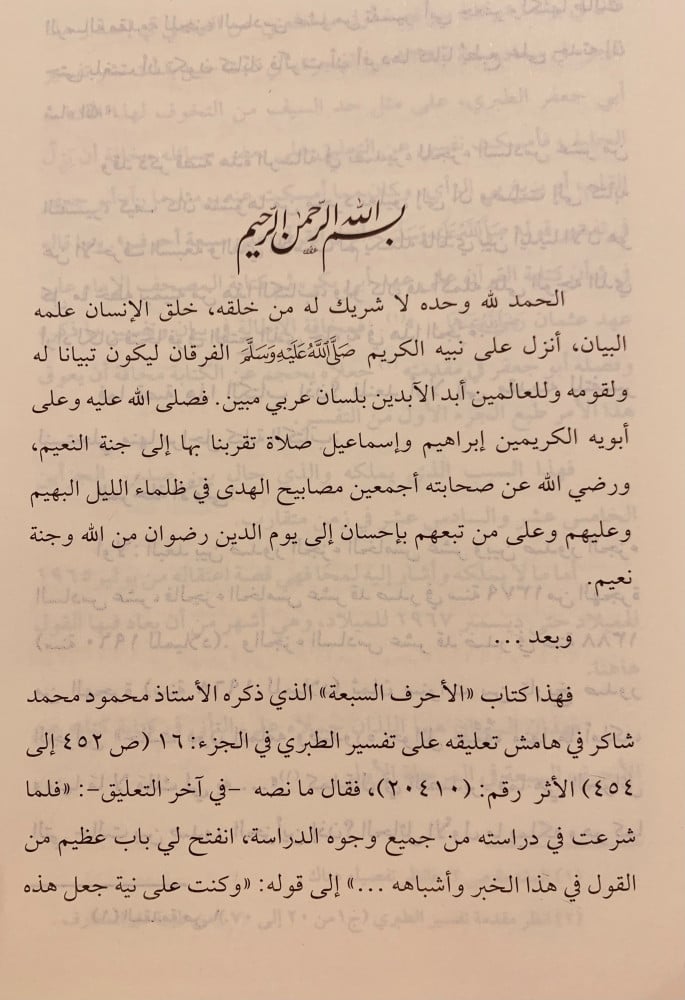 بسم الله الرحمن الرحيم
الحمد لله وحده لا شريك له من خلقه، خلق الإنسان علمه
البيان، أنزل على نبيه الكريم صَلَّى اللَّهُ عَلَيْهِ وَسَلَّمَ الفرقان ليكون تبيانا له
ولقومه وللعالمين أبد الآبدين بلسان عربي مبين. فصلى الله عليه وعلى
أبويه الكريمين إبراهيم وإسماعيل صلاة تقربنا بها إلى جنة النعيم،
ورضي الله عن صحابته أجمعين مصابيح الهدى في ظلماء الليل البهيم
وعليهم وعلى من تبعهم بإحسان إلى يوم الدين رضوان من الله وجنة
نعيم.
وبعد ...
فهذا كتاب «الأحرف السبعة» الذي ذكره الأستاذ محمود محمد
شاكر في هامش تعليقه على تفسير الطبري في الجزء: ١٦ (ص ٤٥٢ إلى
٤٥٤) الأثر رقم: (٢٠٤١٠)، فقال ما نصه -في آخر التعليق-: «فلما
شرعت في دراسته من جميع وجوه الدراسة، انفتح لي باب عظيم من
القول في هذا الخبر وأشباهه ...» إلى قوله: «وكنت على نية جعل هذه